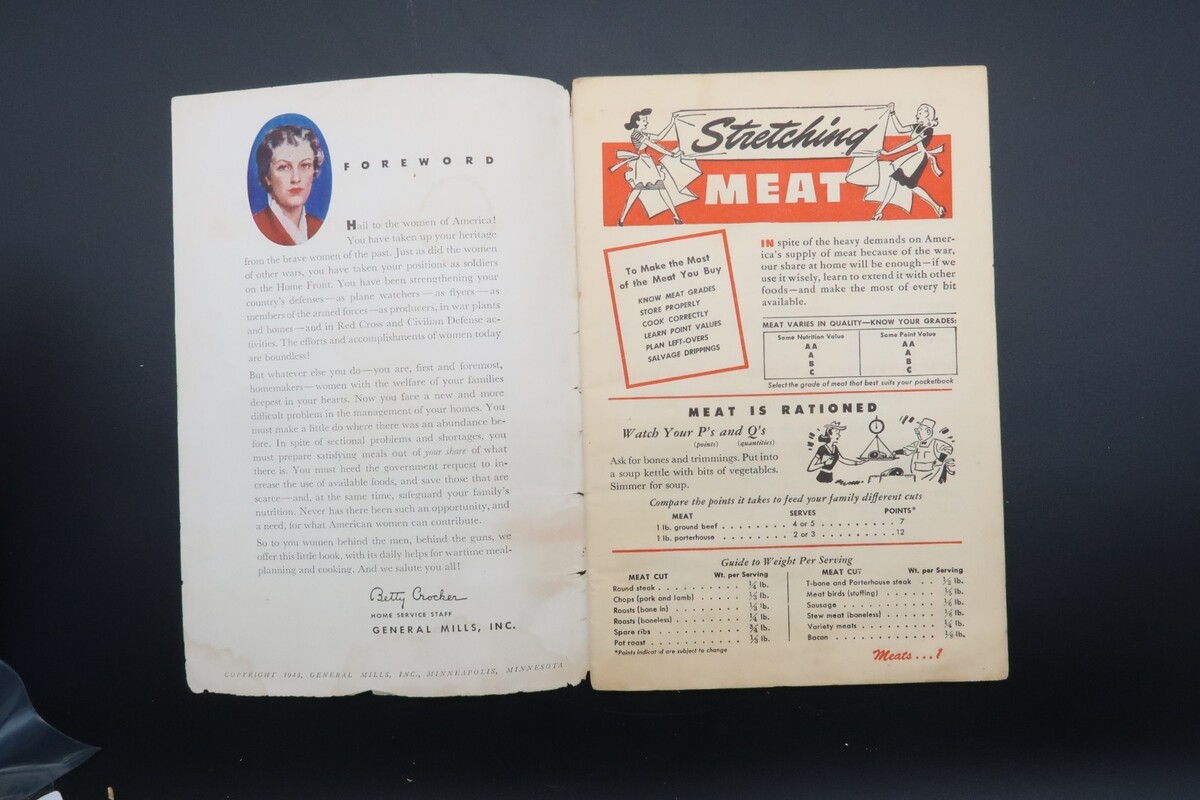 FOREWORD
Hail to the women of America!
You have taken up your heritage
from the brave women of the past. Just as did the women
of other wars, you have taken your positions as soldiers
on the Home Front. You have been strengthening your
country's defenses—as plane watchers—as flyers—as
members of the armed forces—as producers, in war plants
and homes—and in Red Cross and Civilian Defense ac-
tivities. The efforts and accomplishments of women today
are boundless!
But whatever else you do—you are, first and foremost,
homemakers—women with the welfare of your families
deepest in your hearts. Now you face a new and more
difficult problem in the management of your homes. You
must make a little do where there was an abundance be-
fore. In spite of sectional problems and shortages, you
must prepare satisfying meals out of your share of what
there is. You must heed the government request to in-
crease the use of available foods, and save those that are
scarce—and, at the same time, safeguard your family's
nutrition. Never has there been such an opportunity, and
a need, for what American women can contribute.
So to you women behind the men, behind the guns, we
offer this little book, with its daily helps for wartime meal-
planning and cooking. And we salute you all!
Betty Crocker
HOME SERVICE STAFF
GENERAL MILLS, INC.
COPYRIGHT 1943, GENERAL MILLS, INC., MINNEAPOLIS, MINNESOTA
Stretching
MEAT
To Make the Most
of the Meat You Buy
KNOW MEAT GRADES
STORE PROPERLY
COOK CORRECTLY
LEARN POINT VALUES
PLAN LEFT-OVERS
SALVAGE DRIPPINGS
IN spite of the heavy demands on Amer-
ica's supply of meat because of the war,
our share at home will be enough—if we
use it wisely, learn to extend it with other
foods—and make the most of every bit
available.
MEAT VARIES IN QUALITY—KNOW YOUR GRADES:
Same Nutrition Value Same Point Value
AA AA
A A
B B
C C
Select the grade of meat that best suits your pocketbook
MEAT IS RATIONED
Watch Your P's and Q's
(points) (quantities)
Ask for bones and trimmings. Put into
a soup kettle with bits of vegetables.
Simmer for soup.
Compare the points it takes to feed your family different cuts
MEAT SERVES POINTS*
1 lb. ground beef . . . . . . . . 4 or 5 . . . . . . . . . 7
1 lb. porterhouse . . . . . . . . 2 or 3 . . . . . . . . . 12
Guide to Weight Per Serving
MEAT CUT Wt. per Serving
Round steak . . . . . . . . . lb.
Chops (pork and lamb) . . . . . lb.
Roasts (bone in) . . . . . . . lb.
Roasts (boneless) . . . . . . . lb.
Spare ribs . . . . . . . . . lb.
Pot roast . . . . . . . . . lb.
*Points indicated are subject to change
MEAT CUT Wt. per Serving
T-bone and Porterhouse steak . . ½ lb.
Meat birds (stuffing) . . . . . lb.
Sausage . . . . . . . . . . lb.
Stew meat (boneless) . . . . . lb.
Variety meats . . . . . . . . lb.
Bacon . . . . . . . . . . . lb.
Meats...1